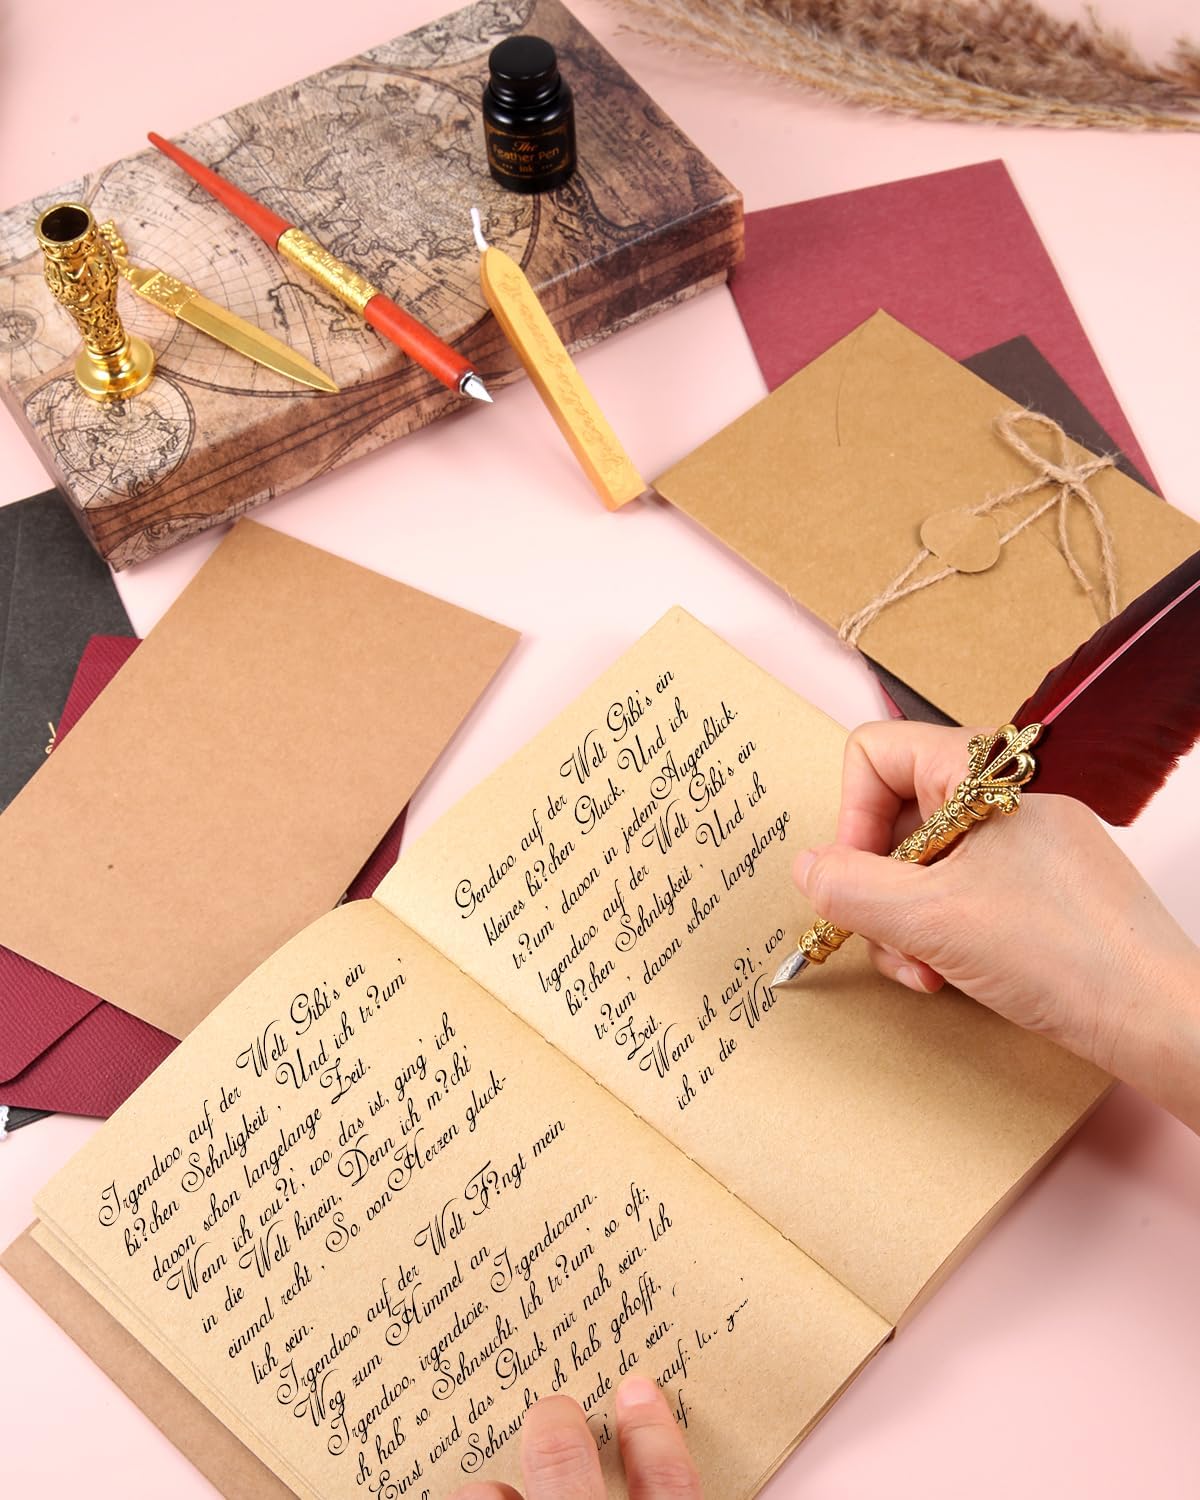 The
Feather Pen
ink
Irgendwo auf der Welt Gibt's ein
bi?chen Sehnligkeit, Und ich tr?um'
davon schon langelange Zeit.
Wenn ich wu?t', wo das ist, ging' ich
in die Welt hinein, Denn ich m?cht'
einmal recht, So von Herzen gluck-
lich sein.
Irgendwo auf der Welt F?ngt mein
Weg zum Himmel an
Irgendwo, irgendwie, Irgendwann.
ch hab' so Sehnsucht, Ich tr?um' so oft;
Einst wird das Gluck mir nah sein. Ich
Sehnsucht ch hab' gehofft,
unde da sein.
rauf:
Gendwo auf der Welt Gibt's ein
kleines bi?chen Gluck, Und ich
tr?um' davon in jedem Augenblick.
Irgendwo auf der Welt Gibt's ein
bi?chen Sehnligkeit, Und ich
tr?um' davon schon langelange
Zeit.
Wenn ich wu?t', wo
ich in die Welt